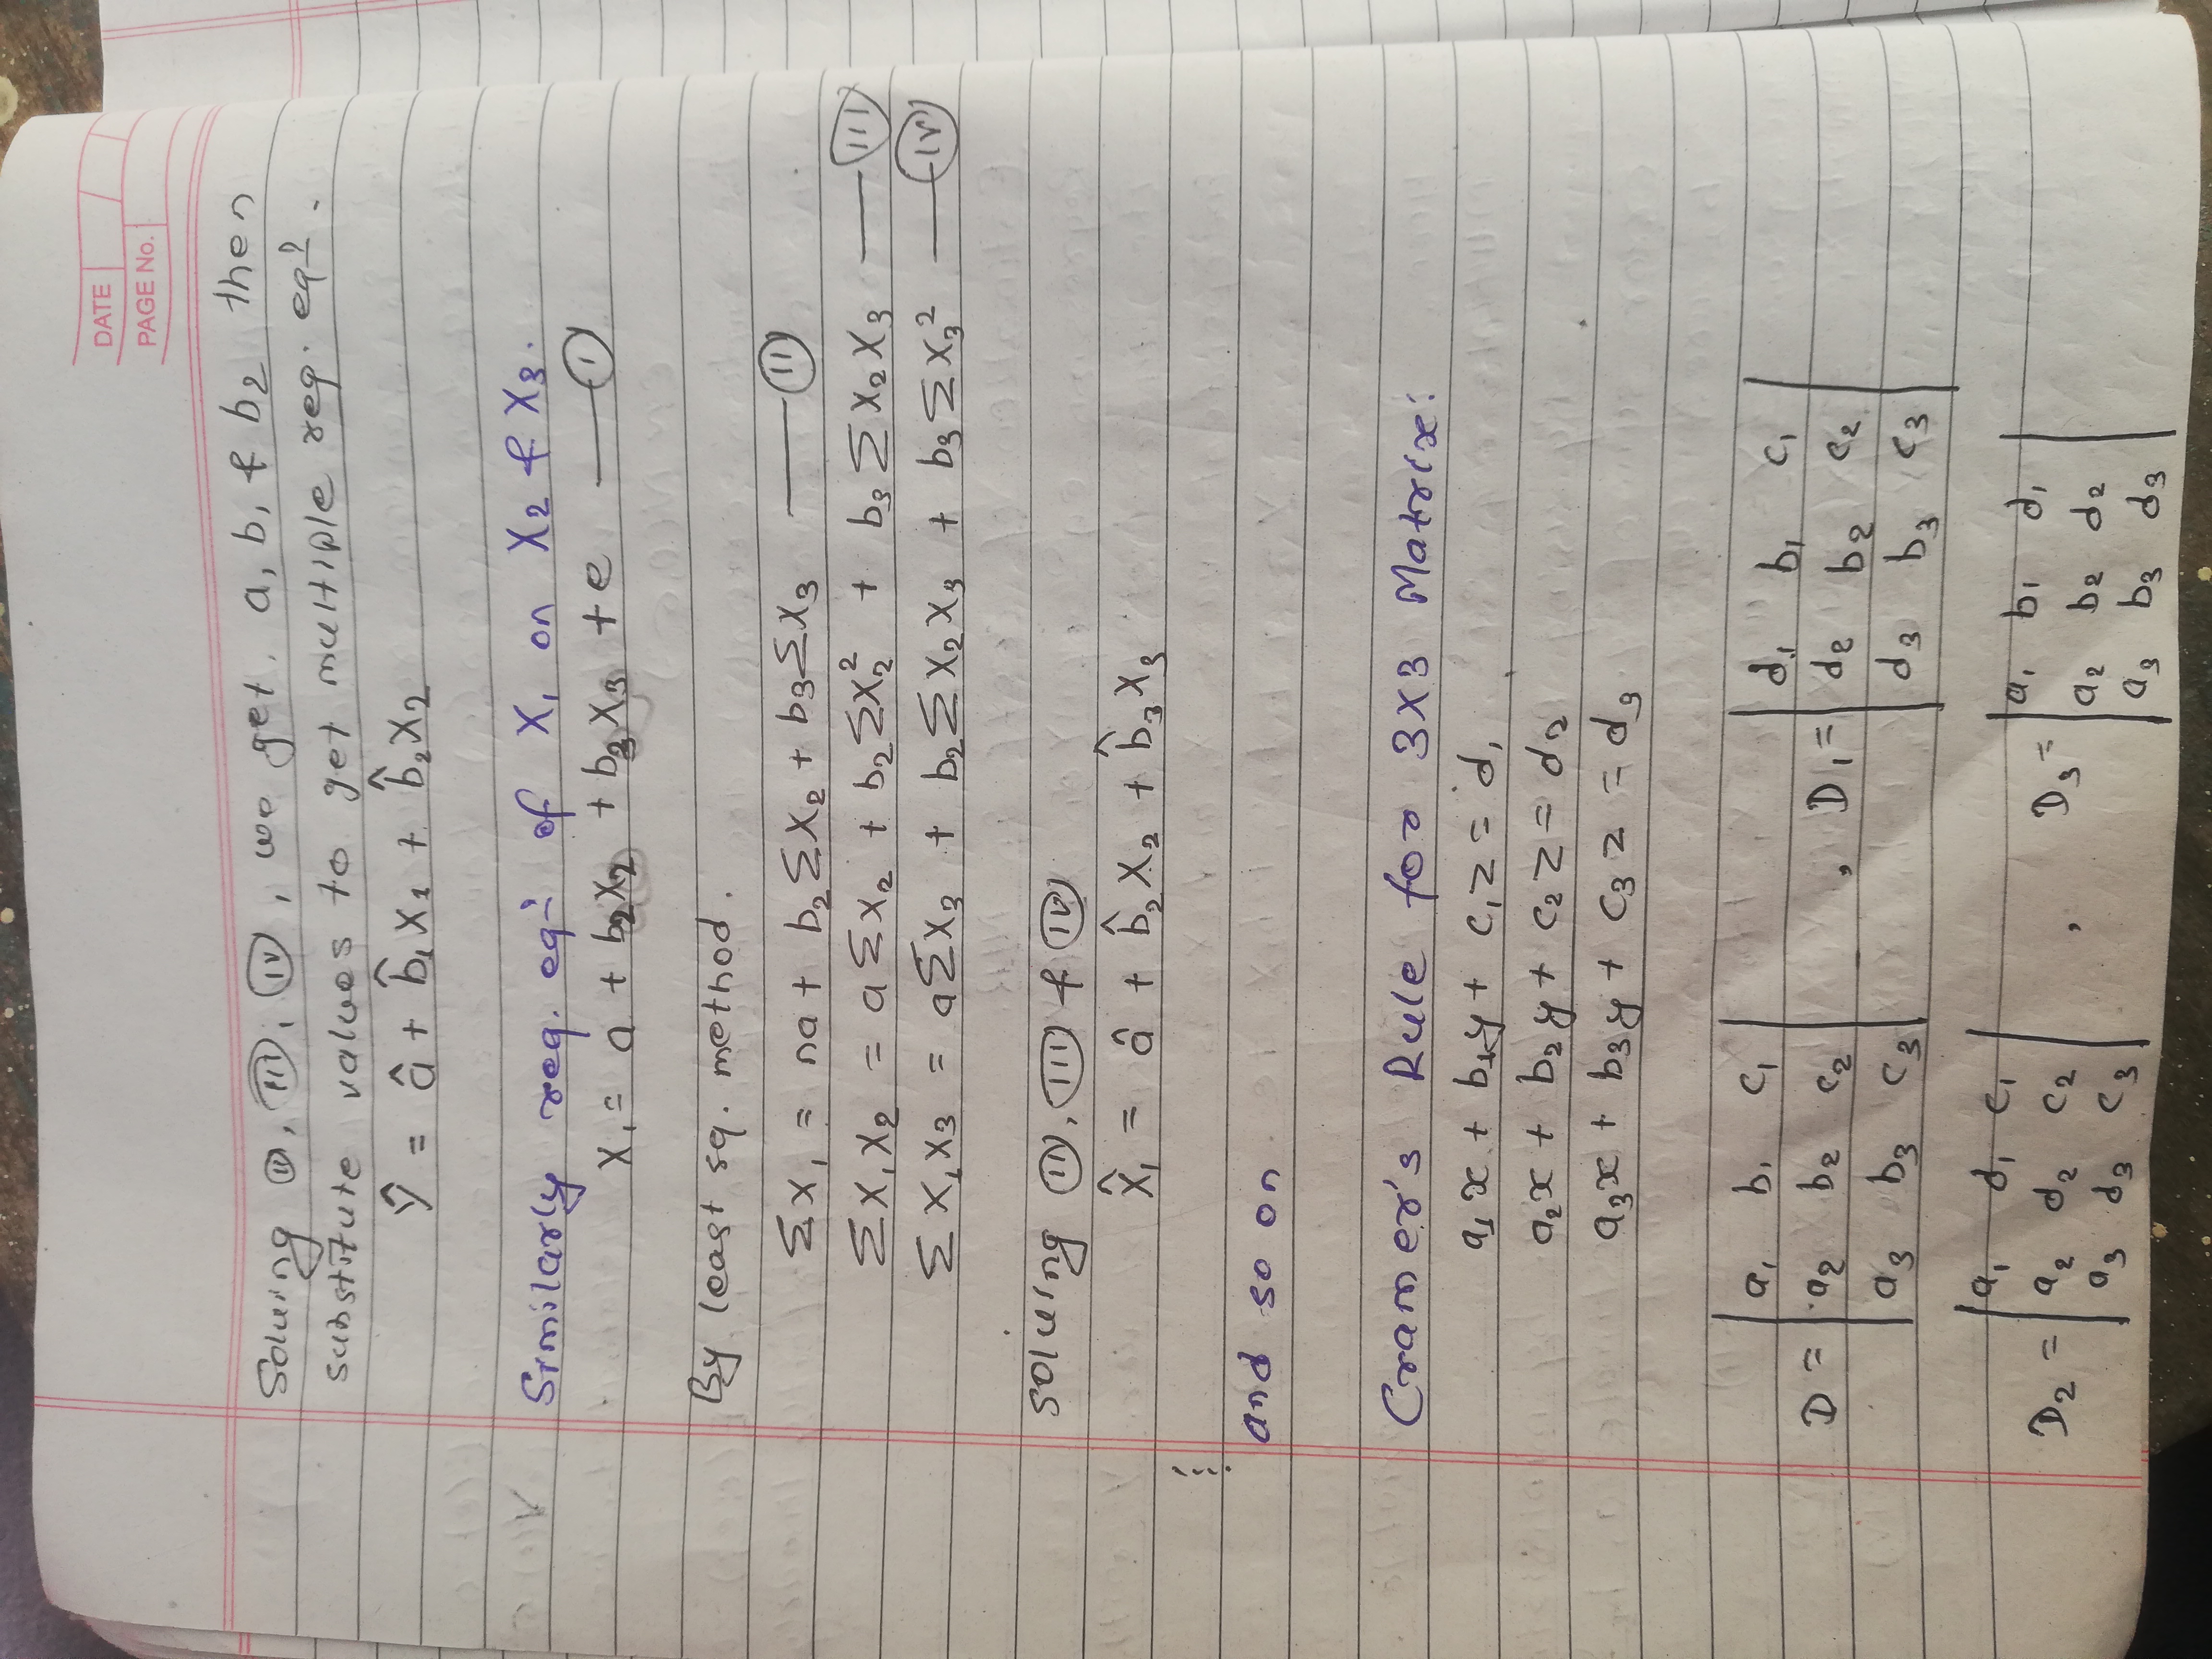 DATE
PAGE No.
Solving (II), (III), (IV), we get. a, b₁ & b2 then
substitute values to get multiple reg. eqⁿ.
Ŷ = â + b̂₁X₁ + b̂₂X₂
Similarly reg. eqⁿ of X₁ on X₂ & X₃.
X₁ = a + b₂X₂ + b₃X₃ + e —— (I)
By least sq. method.
ΣX₁ = na + b₂ΣX₂ + b₃ΣX₃ —— (II)
ΣX₁X₂ = aΣX₂ + b₂ΣX₂² + b₃ΣX₂X₃ —— (III)
ΣX₁X₃ = aΣX₃ + b₂ΣX₂X₃ + b₃ΣX₃² —— (IV)
solving (II), (III) & (IV)
X̂₁ = â + b̂₂X₂ + b̂₃X₃
and so on
Cramer's Rule for 3x3 Matrix:
a₁x + b₁y + c₁z = d₁
a₂x + b₂y + c₂z = d₂
a₃x + b₃y + c₃z = d₃
D = | a₁ b₁ c₁ | , D₁ = | d₁ b₁ c₁ |
| a₂ b₂ c₂ | | d₂ b₂ c₂ |
| a₃ b₃ c₃ | | d₃ b₃ c₃ |
D₂ = | a₁ d₁ c₁ | , D₃ = | a₁ b₁ d₁ |
| a₂ d₂ c₂ | | a₂ b₂ d₂ |
| a₃ d₃ c₃ | | a₃ b₃ d₃ |